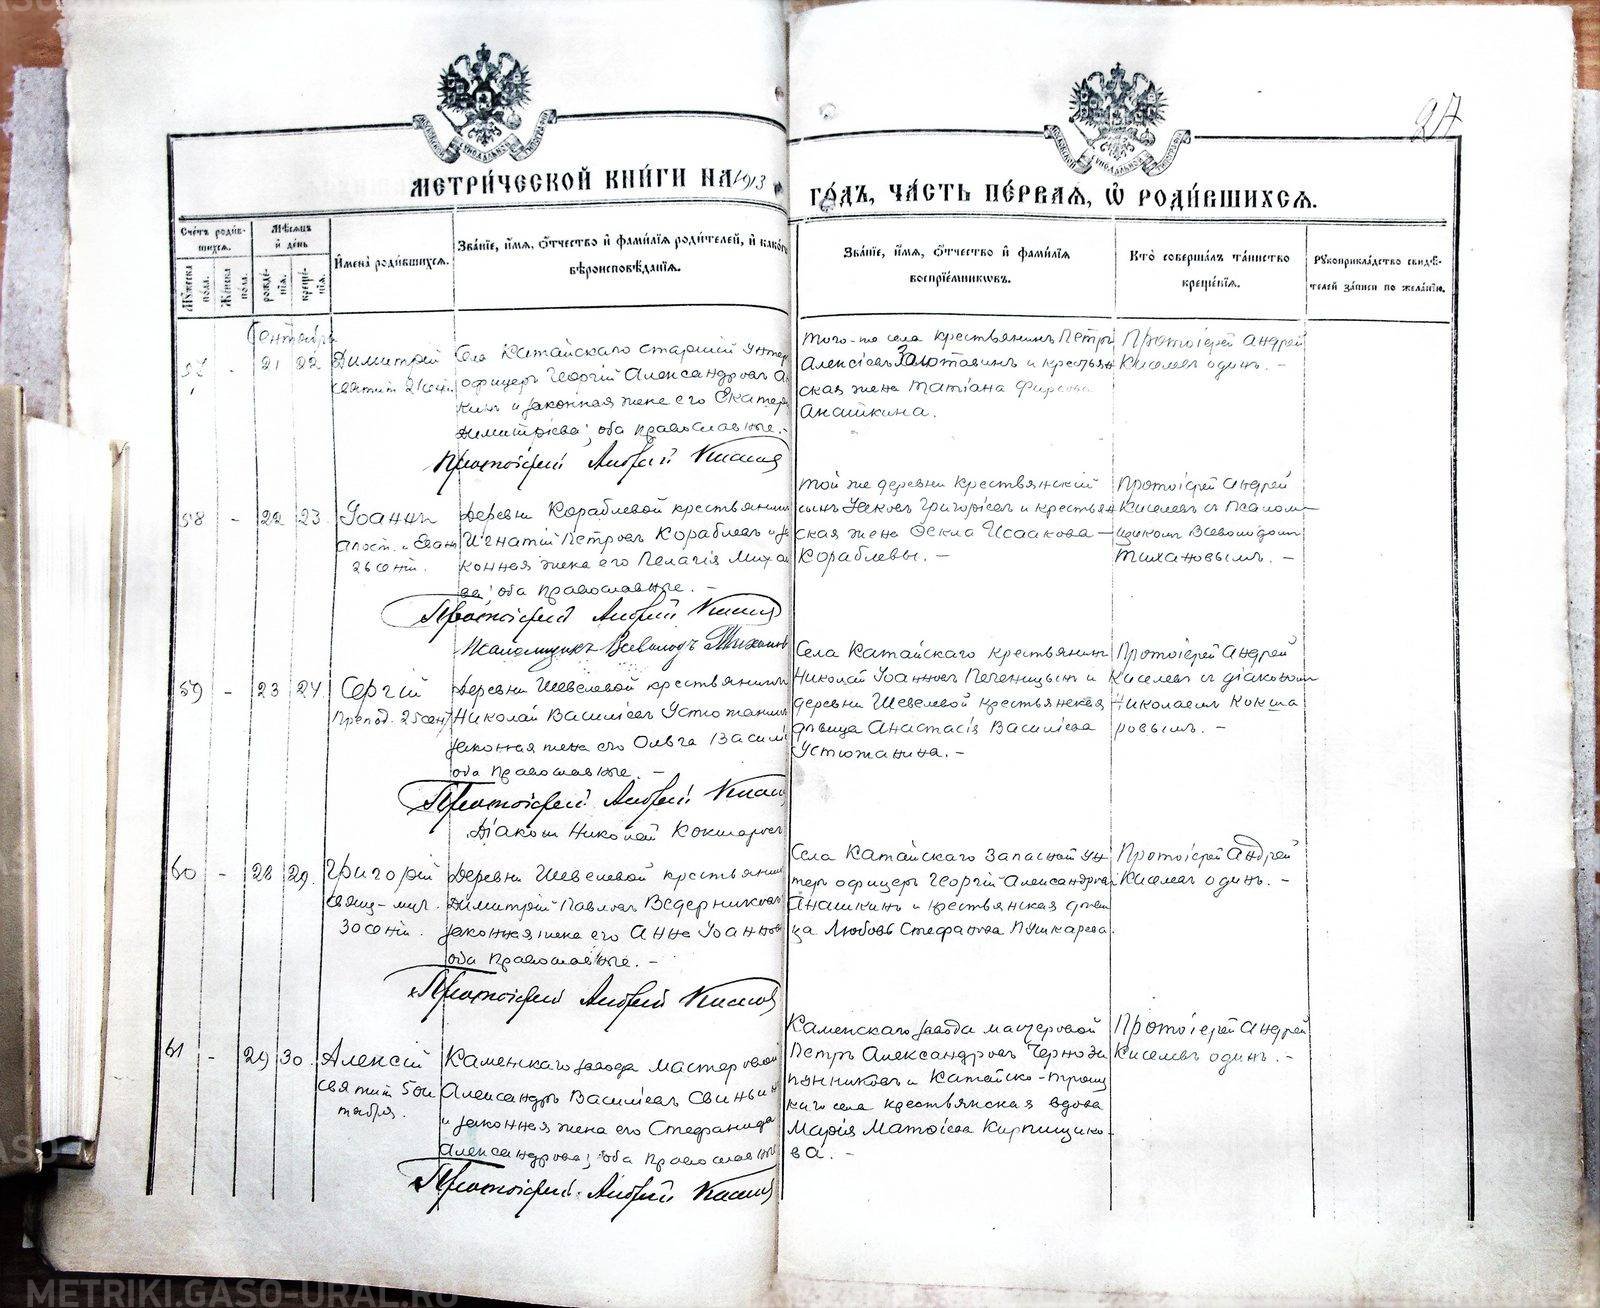 27
МЕТРИ́ЧЕСКОЙ КНИ́ГИ НА 1913
ГО́ДЪ, ЧА́СТЬ ПЕ́РВАЯ, Ѡ РОДИ́ВШИХСЯ.
Сче́тъ роди́в-
шихся.
Му́жеска по́ла.
Же́нска по́ла.
Мѣ́сяцъ
и̂ де́нь
рожде́-
нїя.
креще́-
нїя.
И̂мена̀ роди́вшихся.
Зва́нїе, и̂́мя, о̂́тчество и̂ фами́лїя роди́телей, и̂ како́гѡ
вѣроисповѣ́данїя.
Зва́нїе, и̂́мя, о̂́тчество и̂ фами́лїя
воспрїе́мниковъ.
Кто̀ соверша́лъ та́инство
креще́нїя.
Рꙋкоприкла́дство свидѣ́-
телей за́писи по жела́нїю.
Сентября
57 - 21 22 Димитрій
святит. 21 сент.
Села Катайскаго старшій унтер
офицеръ Георгій Александровъ А
кинъ и законная жена его Екатер
Димитріева; оба православные. -
Протоіерей Андрей Киселев
того-же села крестьянинъ Петръ
Алексіевъ Золотавинъ и крестьян
ская жена Татіана Фирсова
Анашкина.
Протоіерей Андрей
Киселевъ одинъ. -
58 - 22 23. Іоаннъ
Апост. и Еван
26 сент.
Деревни Кораблевой крестьянинъ
Игнатій Петровъ Кораблевъ и за
конная жена его Пелагія Миха
ва; оба православные. -
Протоіерей Андрей Киселев
Псаломщикъ Всеволодъ Тихановъ
той же деревни крестьянскій
сынъ Іаковъ Григоріевъ и крестьян
ская жена Ѳекла Исаакова -
Кораблевы. -
Протоіерей Андрей
Киселевъ съ Псалом
щикомъ Всеволодомъ
Тихановымъ. -
59 - 23 24 Сергій
Препод. 25 сент
Деревни Шевелевой крестьянинъ
Николай Василіевъ Устюжанинъ
законная жена его Ольга Васил
оба православные. -
Протоіерей Андрей Кисел
Діаконъ Николай Кокшаровъ
Села Катайскаго крестьянинъ
Николай Іоанновъ Печеницынъ и
деревни Шевелевой крестьянская
дѣвица Анастасія Василіева
Устюжанина. -
Протоіерей Андрей
Киселевъ съ діакономъ
Николаемъ Кокша
ровымъ. -
60 - 28 29. Григорій
свящ-муч.
30 сент.
Деревни Шевелевой крестьянин
Димитрій Павловъ Ведерниковъ
законная жена его Анна Іоаннов
оба православные. -
Протоіерей Андрей Киселев
Села Катайскаго Запасной ун
теръ офицеръ Георгій Александровъ
Анашкинъ и крестьянская дѣви
ца Любовь Стефанова Пушкарева.
Протоіерей Андрей
Киселевъ одинъ. -
61 - 29 30. Алексій
святит. 5 ок
тября.
Каменскаго завода мастеровой
Александръ Василіевъ Свиньин
и законная жена его Стефанида
Александрова; оба православные
Протоіерей Андрей Киселев
Каменскаго завода мастеровой
Петръ Александровъ Черноды
и Катайско-Троиц
каго села крестьянская вдова
Марія Матѳіева Кирпищико-
ва. -
Протоіерей Андрей
Киселевъ одинъ. -
METRIKI.GASO-URAL.RU